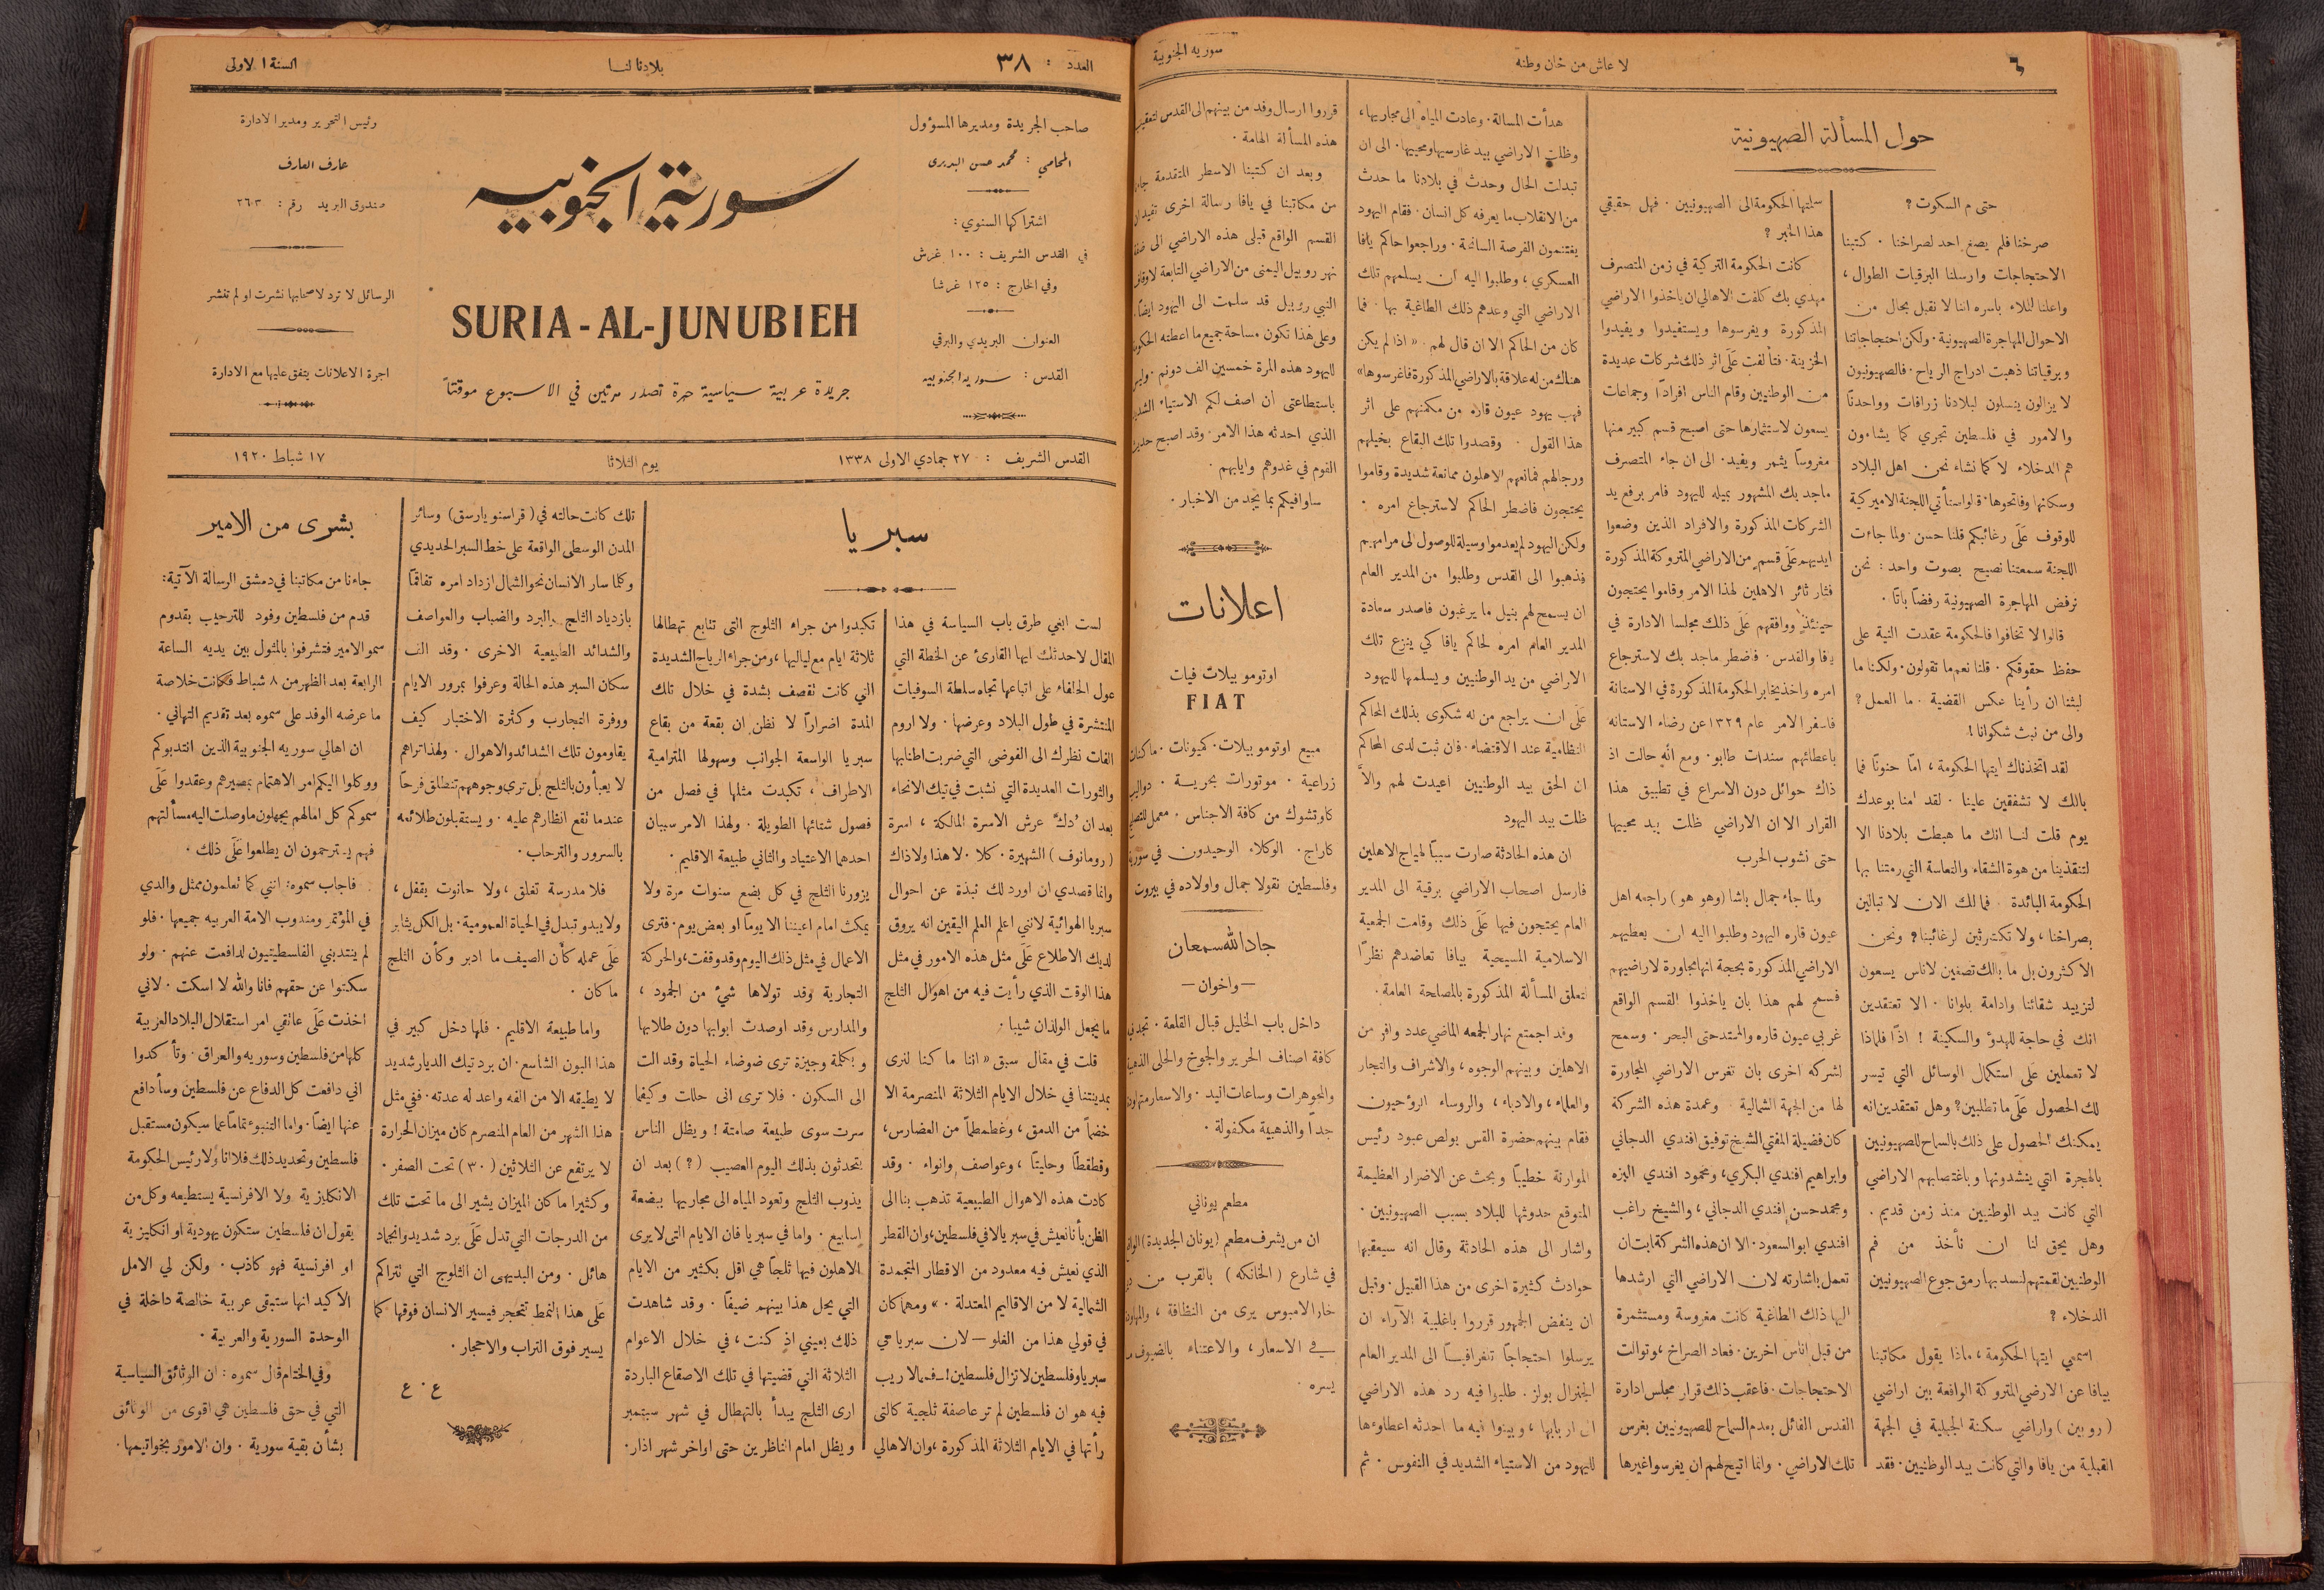 ٦
لا عاش من خان وطنه
سوريه الجنوبية
حول المسألة الصهيونية
حتى م السكوت ؟
صرخنا فلم يصغ احد لصراخنا . كتبنا
الاحتجاجات وارسلنا البرقيات الطوال ،
واعلنا للملاء باسره اننا لا نقبل بحال من
الاحوال المهاجرة الصهيونية . ولكن احتجاجاتنا
وبرقياتنا ذهبت ادراج الرياح . فالصهيونيون
لا يزالون ينسلون لبلادنا زرافات وواحدناً
والامور في فلسطين تجري كما يشاءون
هم الدخلاء لا كما نشاء نحن اهل البلاد
وسكانها وفاتحوها . قالوا ستأتي اللجنة الاميركية
للوقوف عَلَى رغائبكم قلنا حسن . ولما جاءت
اللجنة سمعتنا نصيح بصوت واحد : نحن
نرفض المهاجرة الصهيونية رفضاً باتًا .
قالوا لا تخافوا فالحكومة عقدت النية على
حفظ حقوقكم . قلنا نعم ما تقولون . ولكننا ما
لبثنا ان رأينا عكس القضية . ما العمل ؟
والى من نبث شكوانا !
لقد اتخذناك ايتها الحكومة ، امّا حنونًا فما
بالك لا تشفقين علينا . لقد امنا بوعدك
يوم قلت لنا انك ما هبطت بلادنا الا
لتنقذينا من هوة الشقاء والتعاسة التي رمتنا بها
الحكومة البائدة . فمالك الان لا تبالين
بصراخنا ، ولا تكترثين لرغائبنا ? ونحن
الاكثرون بل ما بالك تصغين لاناس يسعون
لتزييد شقائنا وادامة بلوانا . الا تعتقدين
انك في حاجة للهدؤ والسكينة ! اذًا فلماذا
لا تعملين على استكمال الوسائل التي تيسر
لك الحصول عَلَى ما تطلبين ؟ وهل تعتقدين انه
يمكنك الحصول على ذلك بالسماح للصهيونيين
بالهجرة التي ينشدونها وباغتصابهم الاراضي
التي كانت بيد الوطنيين منذ زمن قديم .
وهل يحق لنا ان نأخذ من فم
الوطنيين لقمتهم لنسد بها رمق جوع الصهيونيين
الدخلاء ؟
اسمعي ايتها الحكومة ، ماذا يقول مكاتبنا
بيافا عن الارضي المتروكة الواقعة بين اراضي
( روبين ) واراضي سكنة الجبلية في الجهة
القبلية من يافا والتي كانت بيد الوطنيين . فقد
سلمتها الحكومة الى الصهيونيين . فهل حقيقي
هذا الخبر ؟
كانت الحكومة التركية في زمن المتصرف
مهدي بك كلفت الاهالي ان ياخذوا الاراضي
المذكورة ويغرسوها ويستفيدوا ويفيدوا
الخزينة . فتألفت عَلَى اثر ذلك شركات عديدة
من الوطنيين وقام الناس افرادًا وجماعات
يسعون لاستثمارها حتى اصبح قسم كبير منها
مغروسًا يثمر ويفيد . الى ان جاء المتصرف
ماجد بك المشهور بميله لليهود فامر برفع يد
الشركات المذكورة والافراد الذين وضعوا
ايديهم عَلَى قسم من الاراضي المتروكة المذكورة
فثار ثائر الاهلين لهذا الامر وقاموا يحتجون
حينئذٍ ووافقهم عَلَى ذلك مجلسا الادارة في
يافا والقدس . فاضطر ماجد بك لاسترجاع
امره واخذ يخابر الحكومة المذكورة في الاستانة
فاسفر الامر عام ١٣٢٩ عن رضاء الاستانه
باعطائهم سندات طابو . ومع انه حالت اذ
ذاك حوائل دون الاسراع في تطبيق هذا
القرار الا ان الاراضي ظلت بيد محييها
حتى نشوب الحرب
ولما جاء جمال باشا ( وهو هو ) راجعه اهل
عيون قاره اليهود وطلبوا اليه ان يعطيهم
الاراضي المذكورة بحجة انها مجاورة لاراضيهم
فسمح لهم هذا بان ياخذوا القسم الواقع
غربي عيون قاره والممتد حتى البحر . وسمح
لشركه اخرى بان تغرس الاراضي المجاورة
لها من الجهة الشمالية . وعمدة هذه الشركة
كان فضيلة المفتي الشيخ توفيق افندي الدجاني
وابراهيم افندي البكري ، ومحمود افندي البزه
ومحمد حسن افندي الدجاني ، والشيخ راغب
افندي ابو السعود . الا ان هذه الشركة ابت ان
تعمل باشارته لان الاراضي التي ارشدها
اليها ذلك الطاغية كانت مغروسة ومستثمرة
من قبل اناس اخرين . فعاد الصراخ ، وتوالت
الاحتجاجات . فاعقب ذلك قرار مجلس ادارة
القدس القائل بعدم السماح للصهيونيين بغرس
تلك الاراضي . وانما اتيح لهم ان يغرسوا غيرها
هدأت المسالة . وعادت المياه الى مجاريها ،
وظلت الاراضي بيد غارسيها ومحييها . الى ان
تبدلت الحال وحدث في بلادنا ما حدث
من الانقلاب ما يعرفه كل انسان . فقام اليهود
يغتنمون الفرصة السانحة . وراجعوا حاكم يافا
العسكري ، وطلبوا اليه ان يسلمهم تلك
الاراضي التي وعدهم ذلك الطاغية بها . فما
كان من الحاكم الا ان قال لهم . « اذا لم يكن
هناك من له علاقة بالاراضي المذكورة فاغرسوها »
فهب يهود عيون قاره من مكمنهم على اثر
هذا القول . وقصدوا تلك البقاع بخيلهم
ورجالهم فمانعهم الاهلون ممانعة شديدة وقاموا
يحتجون فاضطر الحاكم لاسترجاع امره .
ولكن اليهود لم يعدموا وسيلة للوصول الى مرامهم
فذهبوا الى القدس وطلبوا من المدير العام
ان يسمح لهم بنيل ما يرغبون فاصدر سعادة
المدير العام امره لحاكم يافا كي ينزع تلك
الاراضي من يد الوطنيين ويسلمها لليهود
عَلَى ان يراجع من له شكوى بذلك المحاكم
النظامية عند الاقتضاء . فان ثبت لدى المحاكم
ان الحق بيد الوطنيين اعيدت لهم والاَّ
ظلت بيد اليهود
ان هذه الحادثة صارت سببًا لهياج الاهلين
فارسل اصحاب الاراضي برقية الى المدير
العام يحتجون فيها عَلَى ذلك وقامت الجمعية
الاسلامية المسيحية بيافا تعاضدهم نظرًا
لتعلق المسألة المذكورة بالمصلحة العامة .
وقد اجتمع نهار الجمعه الماضي عدد وافر من
الاهلين وبينهم الوجوه ، والاشراف والتجار
والعلماء ، والادباء ، والروساء الروحيون
فقام بينهم حضرة القس بولص عبود رئيس
الموارنة خطيبًا وبحث عن الاضرار العظيمة
المتوقع حدوثها للبلاد بسبب الصهيونيين .
واشار الى هذه الحادثة وقال انه سيعقبها
حوادث كثيرة اخرى من هذا القبيل . وقبل
ان ينفض الجمهور قرروا باغلبية الآراء ان
يرسلوا احتجاجًا تلغرافيًا الى المدير العام
الجنرال بولز . طلبوا فيه رد هذه الاراضي
الى اربابها ، وبينوا فيه ما احدثه اعطاوءها
لليهود من الاستياء الشديد في النفوس . ثم
قرروا ارسال وفد من بينهم الى القدس لتعقيب
هذه المسألة الهامة .
وبعد ان كتبنا الاسطر المتقدمة جاءنا
من مكاتبنا في يافا رسالة اخرى تفيد ان
القسم الواقع قبلى هذه الاراضي الى ضفة
نهر روبيل اليمنى من الاراضي التابعة لاوقاف
النبي روبيل قد سلمت الى اليهود ايضًا
وعلى هذا تكون مساحة جميع ما اعطته الحكومة
لليهود هذه المرة خمسين الف دونم . وليس
باستطاعتى ان اصف لكم الاستياء الشديد
الذي احدثه هذا الامر . وقد اصبح حديث
القوم في غدوهم وايابهم .
ساوافيكم بما يجد من الاخبار .
اعلانات
اوتوموبيلات فيات
FIAT
مبيع اوتوموبيلات . كميونات . ماكنات
زراعية . موتورات بحرية . دواليب
كاوتشوك من كافة الاجناس . معمل للتصليح
كاراج . الوكلاء الوحيدون في سوريا
وفلسطين نقولا جمال واولاده في بيروت
جاد الله سمعان
— واخوان —
داخل باب الخليل قبال القلعة . تجدني
كافة اصناف الحرير والجوخ والحلى الذهبية
والمجوهرات وساعات اليد . والاسعار متهاودة
جدًا والذهبية مكفولة .
مطعم يوناني
ان من يشرف مطعم ( يونان الجديدة )
في شارع ( الخانكه ) بالقرب من
خان الامبوس يرى من النظافة ،
في الاسعار ، والاعتناء بالضيوف ما
يسره .
العدد : ٣٨
بلادنا لنا
السنة الاولى
صاحب الجريدة ومديرها المسؤول
المحامي : محمد حسن البديري
اشتراكها السنوي :
في القدس الشريف : ١٠٠ غرش
وفي الخارج : ١٢٥ غرشا
العنوان البريدي والبرقي
القدس : سورية الجنوبية
سورية الجنوبيه
SURIA - AL-JUNUBIEH
جريدة عربية سياسية حرة تصدر مرتين في الاسبوع موقتًا
رئيس التحرير ومدير الادارة
عارف العارف
صندوق البريد رقم : ٢٦٣
الرسائل لا ترد لاصحابها نشرت او لم تنشر
اجرة الاعلانات يتفق عليها مع الادارة
القدس الشريف : ٢٧ جمادي الاولى ١٣٣٨
يوم الثلاثا
١٧ شباط ١٩٢٠
سبريا
لست ابغي طرق باب السياسة في هذا
المقال لاحدثك ايها القارئ عن الخطة التي
عول الحلفاء على اتباعها تجاه سلطة السوفيات
المنتشرة في طول البلاد وعرضها . ولا اروم
الفات نظرك الى الفوضى التي ضربت اطنابها
والثورات العديدة التي نشبت في تيك الانحاء
بعد ان دك عرش الاسرة المالكة ، اسرة
( رومانوف ) الشهيرة . كلا . لا هذا ولا ذاك
وانما قصدي ان اورد لك نبذة عن احوال
سبريا الهوائية لانني اعلم العلم اليقين انه يروق
لديك الاطلاع عَلَى مثل هذه الامور في مثل
هذا الوقت الذي رأيت فيه من اهوال الثلج
ما يجعل الولدان شيبا .
قلت في مقال سبق « اننا ما كنا لنرى
بمدينتنا في خلال الايام الثلاثة المنصرمة الا
خضماً من الدمق ، وغطمطماً من العضارس ،
وقطقطًا وحليتًا ، وعواصف وانواء . وقد
كادت هذه الاهوال الطبيعية تذهب بنا الى
الظن بأنا نعيش في سبريا لا في فلسطين ، وان القطر
الذي نعيش فيه معدود من الاقطار المتجمدة
الشمالية لا من الاقاليم المعتدلة . » ومهما كان
في قولي هذا من الغلو — لان سبريا هي
سبريا وفلسطين لا تزال فلسطين ! — فمما لا ريب
فيه هو ان فلسطين لم تر عاصفة ثلجية كالتى
رأتها في الايام الثلاثة المذكورة ، وان الاهالي
تكبدوا من جراء الثلوج التى تتابع تهطالها
ثلاثة ايام مع لياليها ، ومن جراء الرياح الشديدة
التي كانت تقصف بشدة في خلال تلك
المدة اضرارًا لا نظن ان بقعة من بقاع
سبريا الواسعة الجوانب وسهولها المترامية
الاطراف ، تكبدت مثلها في فصل من
فصول شتائها الطويلة . ولهذا الامر سببان
احدهما الاعتياد والثاني طبيعة الاقليم .
يزورنا الثلج في كل بضع سنوات مرة ولا
يمكث امام اعيننا الا يومًا او بعض يوم . فترى
الاعمال في مثل ذلك اليوم وقد وقفت ، والحركة
التجارية وقد تولاها شيء من الجمود ،
والمدارس وقد اوصدت ابوابها دون طلابها
وبكلمة وجيزة ترى ضوضاء الحياة وقد الت
الى السكون . فلا ترى انى حللت وكيفما
سرت سوى طبيعة صامتة ! ويظل الناس
يتحدثون بذلك اليوم العصيب ( ? ) بعد ان
يذوب الثلج وتعود المياه الى مجاريها ببضعة
اسابيع . واما في سبريا فان الايام التى لا يرى
الاهلون فيها ثلجاً هي اقل بكثير من الايام
التي يحل هذا بينهم ضيفًا . وقد شاهدت
ذلك بعيني اذ كنت ، في خلال الاعوام
الثلاثة التي قضيتها في تلك الاصقاع الباردة
ارى الثلج يبدأ بالتهطال في شهر سبتمبر
ويظل امام الناظرين حتى اواخر شهر اذار .
تلك كانت حالته في ( قراسنويارسق ) وسائر
المدن الوسطى الواقعة على خط السبر الحديدي
وكلما سار الانسان نحو الشمال ازداد امره تفاقمًا
بازدياد الثلج والبرد والضباب والعواصف
والشدائد الطبيعية الاخرى . وقد الف
سكان السبر هذه الحالة وعرفوا بمرور الايام
ووفرة التجارب وكثرة الاختبار كيف
يقاومون تلك الشدائد والاهوال . ولهذا تراهم
لا يعبأون بالثلج بل ترى وجوههم تنطلق فرحًا
عندما تقع انظارهم عليه . ويستقبلون طلائعه
بالسرور والترحاب .
فلا مدرسة تغلق ، ولا حانوت يقفل ،
ولا يبدو تبدل في الحياة العمومية . بل الكل يثابر
عَلَى عمله كأن الصيف ما ادبر وكأن الثلج
ما كان .
واما طبيعة الاقليم . فلها دخل كبير في
هذا البون الشاسع . ان برد تيك الديار شديد
لا يطيقه الا من الفه واعد له عدته . ففي مثل
هذا الشهر من العام المنصرم كان ميزان الحرارة
لا يرتفع عن الثلاثين ( ٣٠ ) تحت الصفر .
وكثيرا ما كان الميزان يشير الى ما تحت تلك
من الدرجات التي تدل عَلَى برد شديد وانجماد
هائل . ومن البديهى ان الثلوج التي تتراكم
عَلَى هذا النمط تتحجر فيسير الانسان فوقها كما
يسير فوق التراب والاحجار .
ع . ع
بشرى من الامير
جاءنا من مكاتبنا في دمشق الرسالة الآتية :
قدم من فلسطين وفود للترحيب بقدوم
سمو الامير فتشرفوا بالمثول بين يديه الساعة
الرابعة بعد الظهر من ٨ شباط فكانت خلاصة
ما عرضه الوفد على سموه بعد تقديم التهاني .
ان اهالي سوريه الجنوبية الذين انتدبوكم
ووكلوا اليكم امر الاهتمام بمصيرهم وعقدوا عَلَى
سموكم كل امالهم يجهلون ما وصلت اليه مسألتهم
فهم يسترحمون ان يطلعوا عَلَى ذلك .
فاجاب سموه : انني كما تعلمون ممثل والدي
في المؤتمر ومندوب الامة العربيه جميعها . فلو
لم ينتدبني الفلسطينيون لدافعت عنهم . ولو
سكتوا عن حقهم فانا والله لا اسكت . لاني
اخذت عَلَى عاتقي امر استقلال البلاد العربية
كلها من فلسطين وسوريه والعراق . وتأكدوا
اني دافعت كل الدفاع عن فلسطين وسأدافع
عنها ايضًا . واما التنبوء تمامًا عما سيكون مستقبل
فلسطين وتحديد ذلك فلا انا ولا رئيس الحكومة
الانكليزية ولا الافرنسية يستطيعه وكل من
يقول ان فلسطين ستكون يهودية او انكليزية
او افرنسية فهو كاذب . ولكن لي الامل
الاكيد انها ستبقى عربية خالصة داخلة في
الوحدة السورية والعربية .
وفي الختام قال سموه : ان الوثائق السياسية
التي في حق فلسطين هي اقوى من الوثائق
بشأن بقية سورية . وان الامور بخواتيمها .